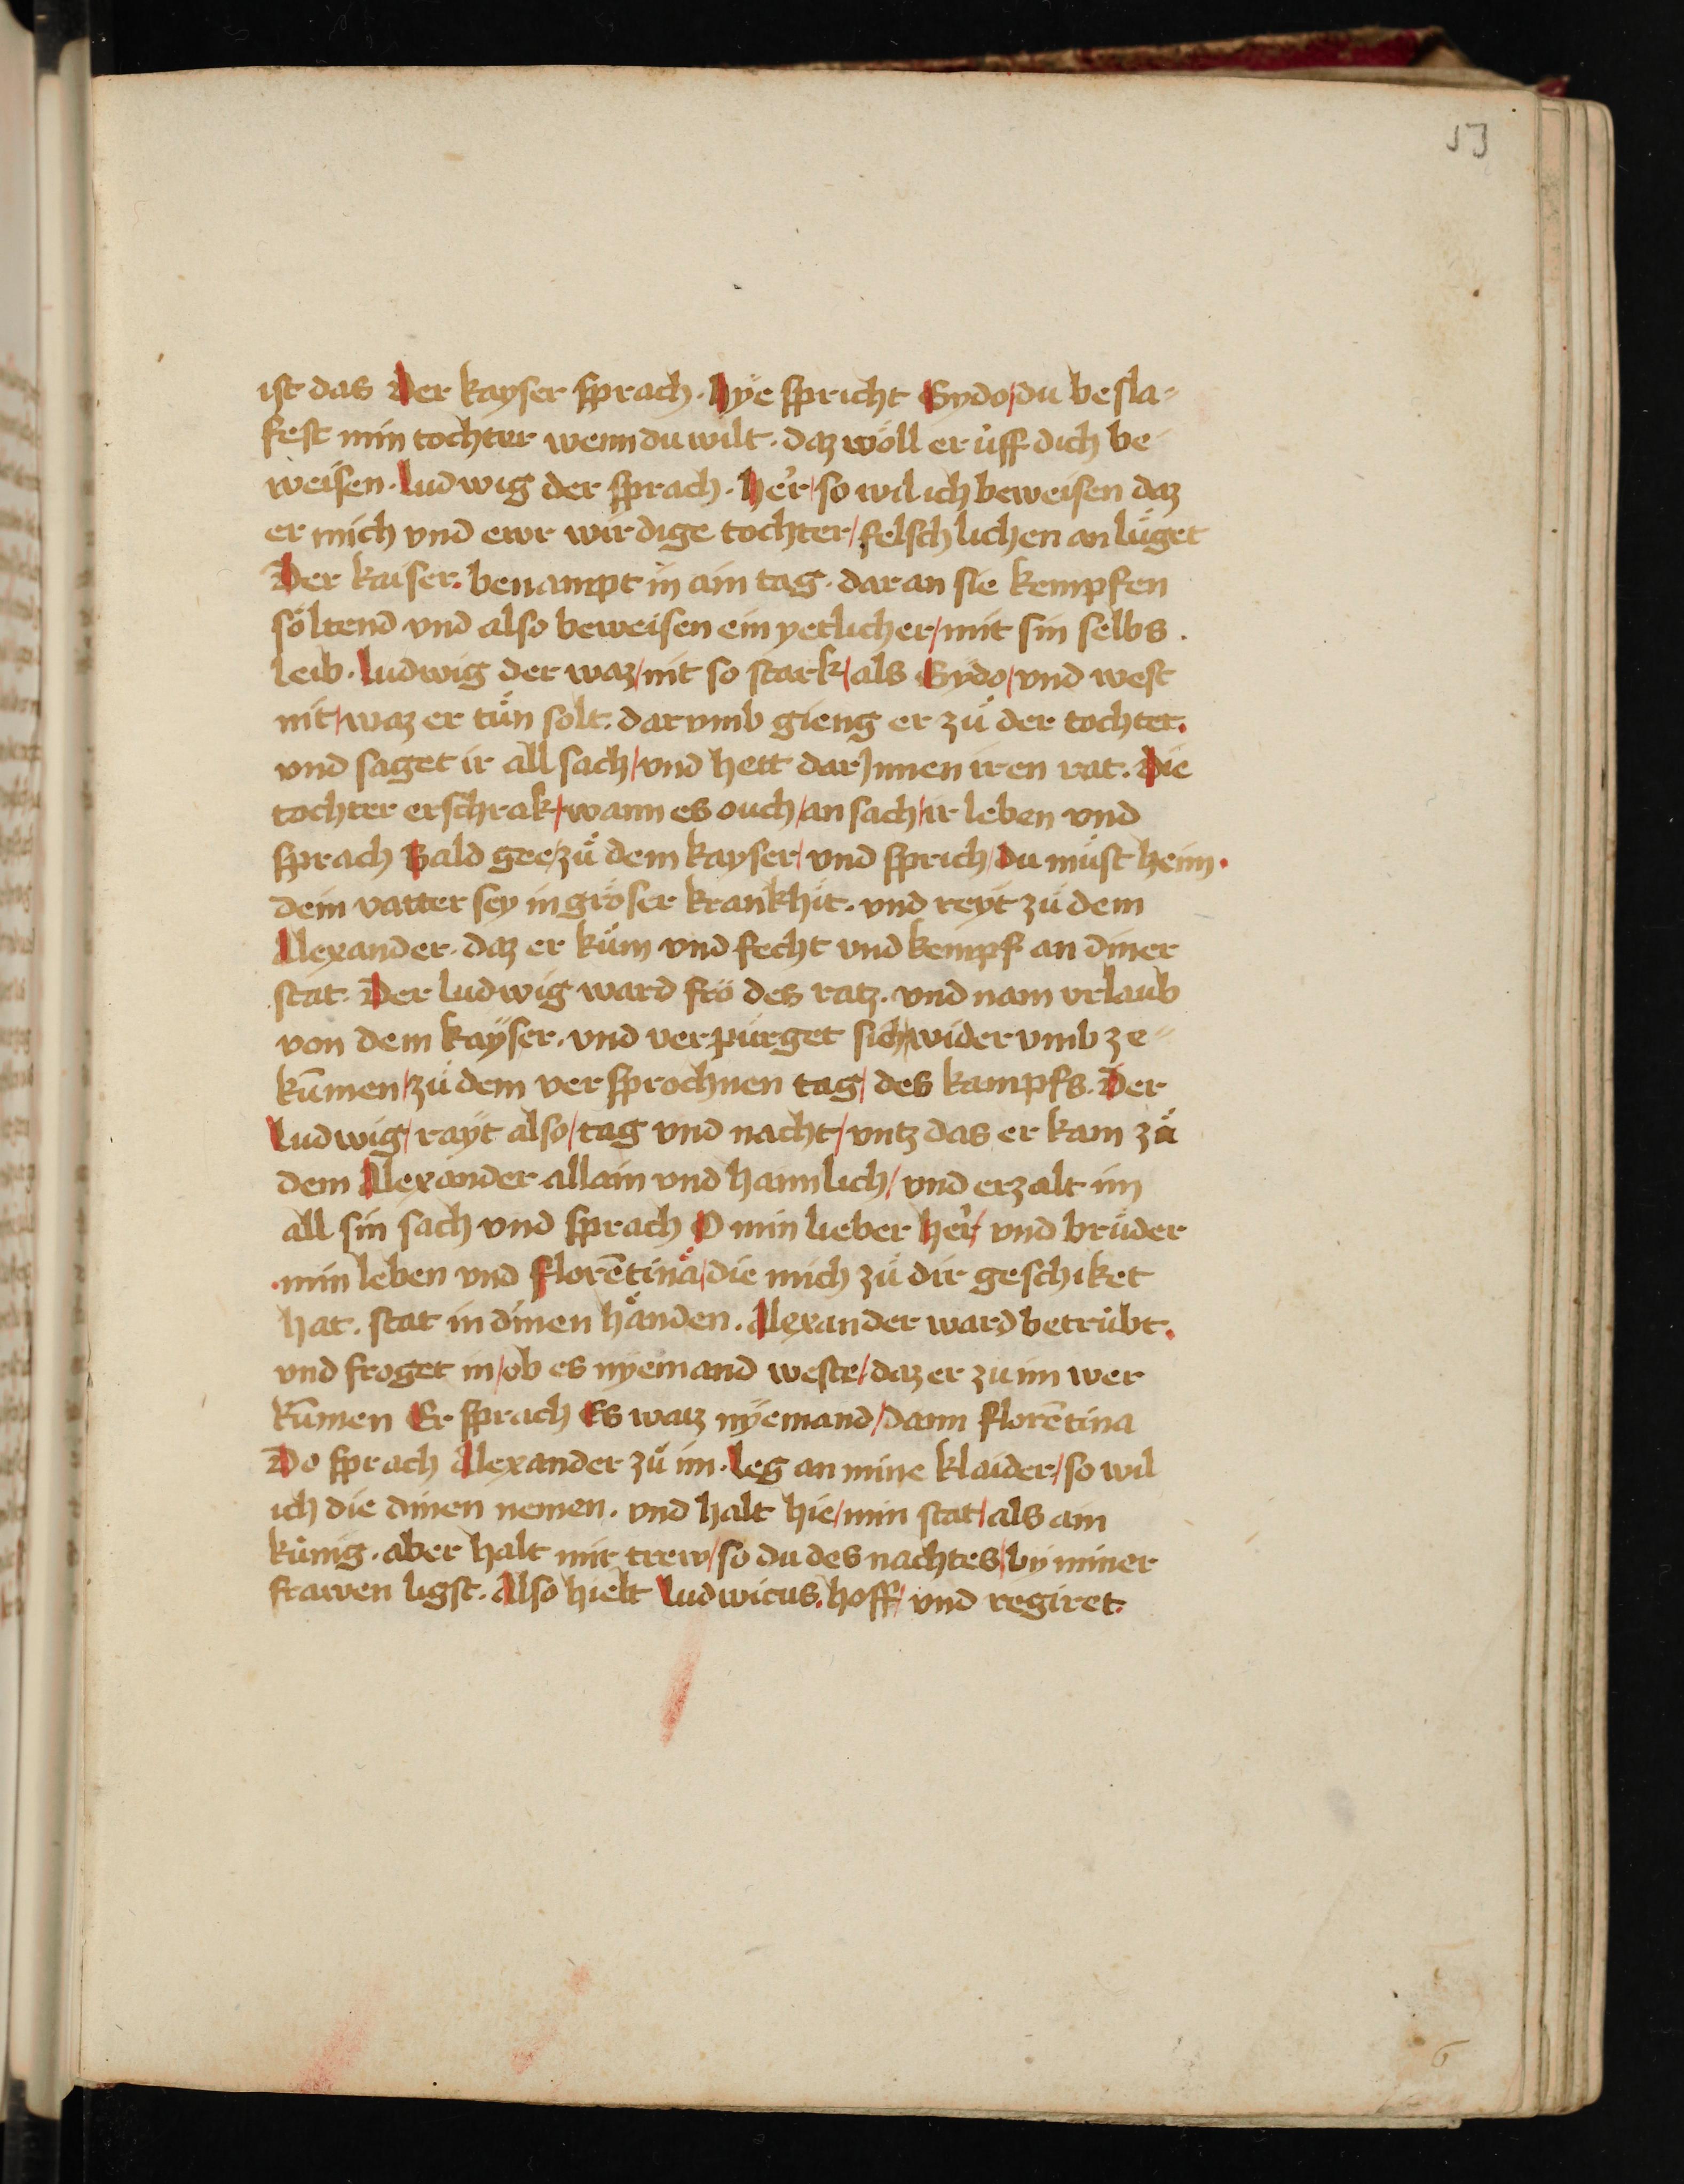 53
ist das Der kayser sprach. Hye spricht Gydo/du besla-
fest min tochter wenn du wilt. daz wöll er uff dich be
weisen. Ludwig der sprach. Her̃/so wil ich beweisen daz
er mich vnd ewr wirdige tochter/felschlichen an lüget
Der kaiser. benampt in ain tag. dar an sie kempfen
söltend vnd also beweisen ein yetlicher/mit sin selbs.
leib. Ludwig der waz/nit so stark/als Gydo/vnd west
nit/waz er tuͦn solt. dar vmb gieng er zuͦ der tochter.
vnd saget ir all sach/vnd hett darJnnen iren rat. Die
tochter erschrak/wann es ouch/an sach/ir leben vnd
sprach Bald gee/zuͦ dem kayser/vnd sprich/Du muͦst heim.
dein vatter sey in gröser krankhit. vnd reyt zuͦ dem
Alexander. daz er kum vnd fecht vnd kempf an diner
stat. Der ludwig ward frö des ratz. vnd nam vrlaub
von dem kaÿser. vnd verpürget sich/wider vmb ze-
kum̃en/zuͦ dem versprochnen tag/des kampfs. Der
Ludwig/rayt also/tag vnd nacht/vntz das er kam zuͦ
dem Alexander allain vnd hamlich/vnd erzalt im
all sin sach vnd sprach O min lieber her̃/vnd bruͦder
.min leben vnd florẽtina/die mich zuͦ dir geschiket
hat. stat in dinen händen. Alexander ward betrübt.
vnd froget in/ob es nyemand weste/daz er zu im wer
kum̃en Er sprach Es waz nÿemand/dann florẽtina
Do sprach Alexander zuͦ im. Leg an mine klaider/so wil
ich die dinen nemen. vnd halt hie/min stat/als ain
künig. aber halt mir trew/so du des nachtes/by miner
frawen ligst. Also hielt Ludwicus. hoff/vnd regiret.
6